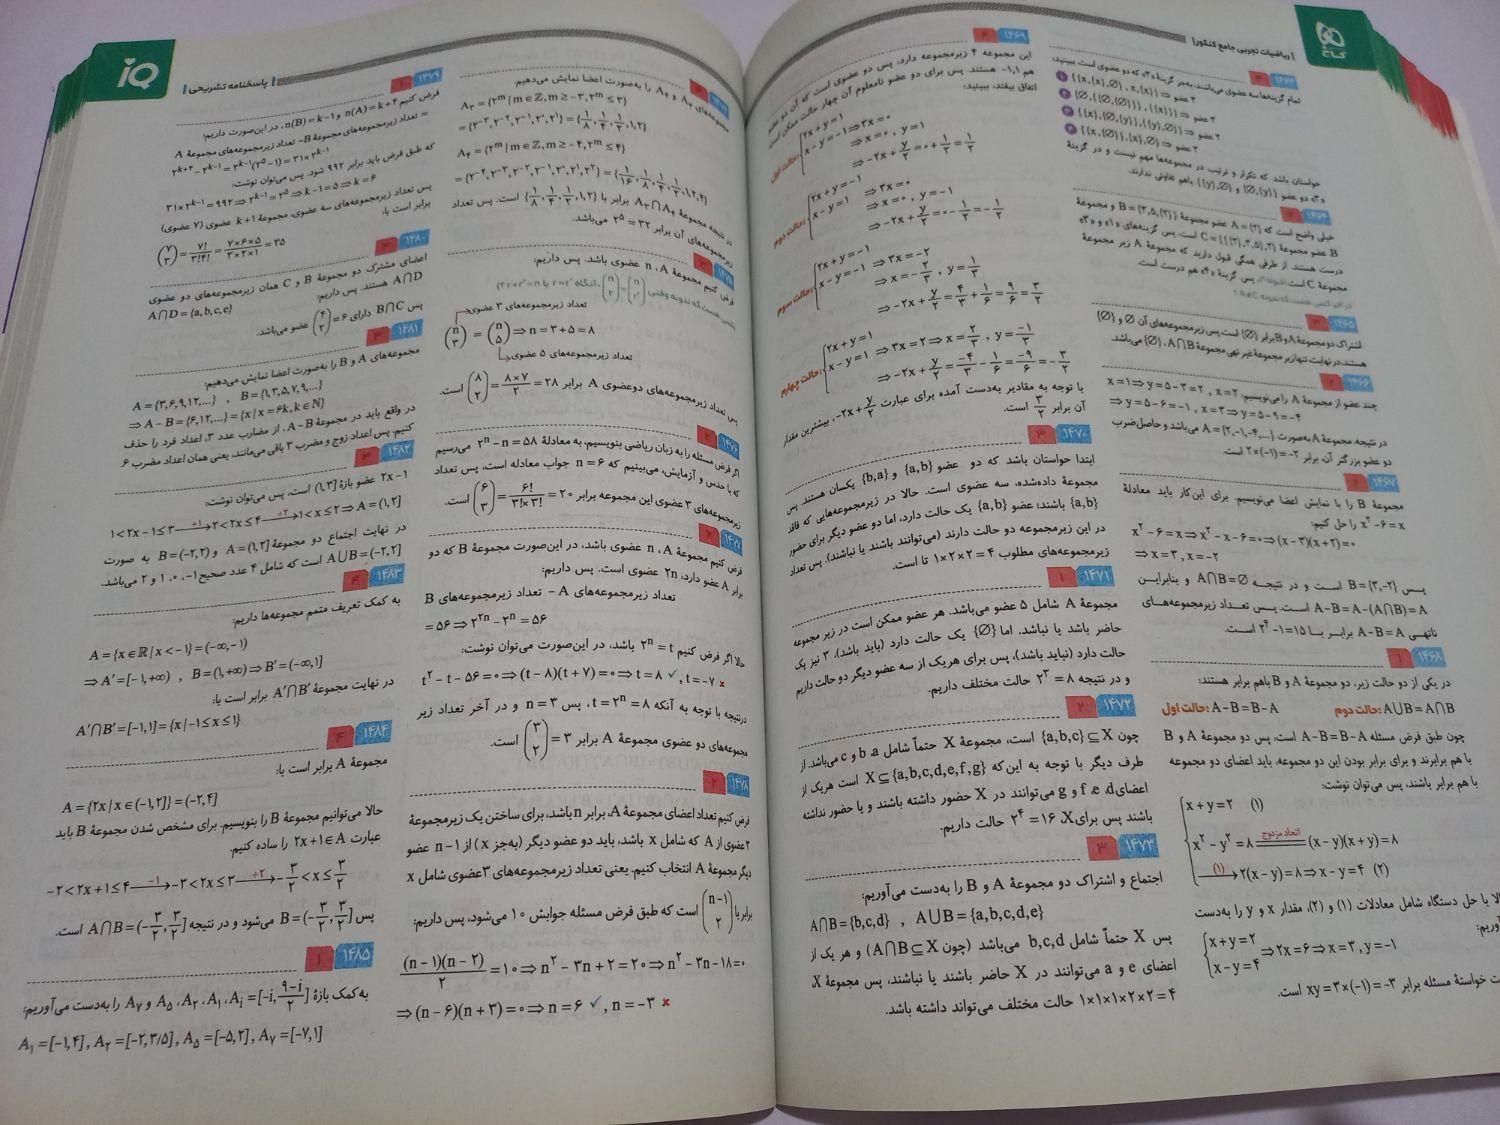 ریاضیات تجربی جامع کنکور
گاج
۱۴۶۳
تمام گزینه‌ها سه عضوی می‌باشند، به‌جز گزینهٔ «۳» که دو عضوی است، ببینید:
حواستان باشد که تکرار و ترتیب در مجموعه‌ها مهم نیست و در گزینهٔ
«۳» دو عضو {∅,y} و {y,∅} باهم تفاوتی ندارند.
۱۴۶۴
درست هستند. از طرفی همگی قبول دارید که مجموعهٔ A زیر مجموعهٔ
۱۴۶۵ ۳
اشتراک دو مجموعهٔ A و B برابر {∅} است. پس زیرمجموعه‌های آن ∅ و {∅}
هستند. در نهایت تنها زیر مجموعهٔ غیر تهی مجموعهٔ A∩B، {∅} می‌باشد.
۱۴۶۶ ۲
چند عضو از مجموعهٔ A را می‌نویسیم:
x=۱⇒y=۵-۳=۲ , x=۲
⇒y=۵-۶=-۱ , x=۳⇒y=۵-۹=-۴
در نتیجه مجموعهٔ A به‌صورت A={۲,-۱,-۴,...} می‌باشد و حاصل‌ضرب
دو عضو بزرگتر آن، برابر ۲×(-۱)=-۲ است.
۱۴۶۷
مجموعهٔ B را با نمایش اعضا می‌نویسیم. برای این‌کار باید معادلهٔ
x²-۶=x را حل کنیم:
x²-۶=x⇒x²-x-۶=۰⇒(x-۳)(x+۲)=۰
⇒x=۳ , x=-۲
پس B={۳,-۲} است و در نتیجه A∩B=∅ و بنابراین
A-B=A-(A∩B)=A است. پس تعداد زیرمجموعه‌های
ناتهی A-B=A برابر با ۲⁴-۱=۱۵ است.
۱۴۶۸ ۱
در یکی از دو حالت زیر، دو مجموعهٔ A و B باهم برابر هستند:
حالت اول: A-B=B-A حالت دوم: A∪B=A∩B
چون طبق فرض مسئله A-B=B-A است، پس دو مجموعهٔ A و B
با هم برابرند و برای برابر بودن این دو مجموعه، باید اعضای دو مجموعه
با هم برابر باشند، پس می‌توان نوشت:
x+y=۲ (۱)
x²-y²=۸ اتحاد مزدوج (x-y)(x+y)=۸
(۱) → ۲(x-y)=۸⇒x-y=۴ (۲)
با حل دستگاه شامل معادلات (۱) و (۲)، مقدار x و y را به‌دست
x+y=۲
x-y=۴
⇒۲x=۶⇒x=۳, y=-۱
خواستهٔ مسئله برابر xy=۳×(-۱)=-۳ است.
۱۴۶۹
این مجموعه ۴ زیرمجموعه دارد، پس دو عضوی است که آن دو عضو
هم ۱,-۱ هستند. پس برای دو عضو نامعلوم آن چهار حالت ممکن است
اتفاق بیفتد، ببینید:
حالت اول: ۲x+y=۱
x-y=-۱ ⇒۳x=۰
⇒x=۰ , y=۱
⇒-۲x+y/۲=۰+۱/۲=۱/۲
حالت دوم: ۲x+y=-۱
x-y=۱ ⇒۳x=۰
⇒x=۰ , y=-۱
⇒-۲x+y/۲=۰-۱/۲=-۱/۲
حالت سوم: ۲x+y=-۱
x-y=-۱ ⇒۳x=-۲
⇒x=-۲/۳ , y=۱/۳
⇒-۲x+y/۲=۴/۳+۱/۶=۹/۶=۳/۲
حالت چهارم: ۲x+y=۱
x-y=۱ ⇒۳x=۲⇒x=۲/۳ , y=-۱/۳
⇒-۲x+y/۲=-۴/۳-۱/۶=-۹/۶=-۳/۲
با توجه به مقادیر به‌دست آمده برای عبارت -۲x+y/۲، بیشترین مقدار
آن برابر ۳/۲ است.
۱۴۷۰ ۳
ابتدا حواستان باشد که دو عضو {a,b} و {b,a} یکسان هستند. پس
مجموعهٔ داده‌شده، سه عضوی است. حالا در زیرمجموعه‌هایی که فاقد
{a,b} باشند؛ عضو {a,b} یک حالت دارد، اما دو عضو دیگر برای حضور
در این زیرمجموعه دو حالت دارند (می‌توانند باشند یا نباشند). پس تعداد
زیرمجموعه‌های مطلوب ۱×۲×۲=۴ تا است.
۱۴۷۱ ۱
مجموعهٔ A شامل ۵ عضو می‌باشد. هر عضو ممکن است در زیر مجموعه
حاضر باشد یا نباشد. اما {∅} یک حالت دارد (باید باشد)، ۳ نیز یک
حالت دارد (نباید باشد)، پس برای هریک از سه عضو دیگر دو حالت داریم
و در نتیجه ۲³=۸ حالت مختلف داریم.
۱۴۷۲ ۲
چون {a,b,c}⊆X است، مجموعهٔ X حتماً شامل a، b و c می‌باشد. از
طرف دیگر با توجه به این‌که X⊆{a,b,c,d,e,f,g} است هریک از
اعضای d، e، f و g می‌توانند در X حضور داشته باشند و یا حضور نداشته
باشند پس برای X، ۲⁴=۱۶ حالت داریم.
۱۴۷۳ ۳
اجتماع و اشتراک دو مجموعهٔ A و B را به‌دست می‌آوریم:
A∩B={b,c,d} , A∪B={a,b,c,d,e}
پس X حتماً شامل b,c,d می‌باشد (چون A∩B⊆X) و هر یک از
اعضای e و a می‌توانند در X حاضر باشند یا نباشند، پس مجموعهٔ X،
۱×۱×۱×۲×۲=۴ حالت مختلف می‌تواند داشته باشد.
پاسخنامه تشریحی
iQ
مجموعه‌های A₃ و A₄ را به‌صورت اعضا نمایش می‌دهیم:
A₃={۲ᵐ|m∈ℤ, m≥-۳, ۲ᵐ≤۳}
={۲⁻³,۲⁻²,۲⁻¹,۲⁰,۲¹}={۱/۸,۱/۴,۱/۲,۱,۲}
A₄={۲ᵐ|m∈ℤ, m≥-۴, ۲ᵐ≤۴}
={۲⁻⁴,۲⁻³,۲⁻²,۲⁻¹,۲⁰,۲¹,۲²}={۱/۱۶,۱/۸,۱/۴,۱/۲,۱,۲,۴}
در نتیجه مجموعهٔ A₃∩A₄ برابر با {۱/۸,۱/۴,۱/۲,۱,۲} است. پس تعداد
زیرمجموعه‌های آن برابر ۲⁵=۳۲ می‌باشد.
فرض کنیم مجموعهٔ A، n عضوی باشد. پس داریم:
تعداد زیرمجموعه‌های ۳ عضوی
(n ۳)=(n ۵)⇒n=۳+۵=۸
تعداد زیرمجموعه‌های ۵ عضوی
پس تعداد زیرمجموعه‌های دوعضوی A برابر (۸ ۲)=۸×۷/۲=۲۸ است.
۱۴۷۶ ۲
اگر فرض مسئله را به زبان ریاضی بنویسیم، به معادلهٔ ۲ⁿ-n=۵۸ می‌رسیم
که با حدس و آزمایش، می‌بینیم که n=۶ جواب معادله است، پس تعداد
زیرمجموعه‌های ۳ عضوی این مجموعه برابر (۶ ۳)=۶!/۳!×۳!=۲۰ است.
۱۴۷۷
فرض کنیم مجموعهٔ A، n عضوی باشد، در این‌صورت مجموعهٔ B که دو
برابر A عضو دارد، ۲n عضوی است. پس داریم:
تعداد زیرمجموعه‌های A - تعداد زیرمجموعه‌های B
=۵۶⇒۲²ⁿ-۲ⁿ=۵۶
حالا اگر فرض کنیم ۲ⁿ=t باشد، در این‌صورت می‌توان نوشت:
t²-t-۵۶=۰⇒(t-۸)(t+۷)=۰⇒t=۸ ✓, t=-۷ ×
درنتیجه با توجه به آنکه t=۲ⁿ=۸، پس n=۳ و در آخر تعداد زیر
مجموعه‌های دو عضوی مجموعهٔ A برابر (۳ ۲)=۳ است.
۱۴۷۸ ۲
فرض کنیم تعداد اعضای مجموعهٔ A، برابر n باشد، برای ساختن یک زیرمجموعهٔ
۳ عضوی از A که شامل x باشد، باید دو عضو دیگر (به‌جز x) از n-۱ عضو
دیگر مجموعهٔ A انتخاب کنیم. یعنی تعداد زیرمجموعه‌های ۳عضوی شامل x
برابر با (n-۱ ۲) است که طبق فرض مسئله جوابش ۱۰ می‌شود، پس داریم:
(n-۱)(n-۲)/۲=۱۰⇒n²-۳n+۲=۲۰⇒n²-۳n-۱۸=۰
⇒(n-۶)(n+۳)=۰⇒n=۶ ✓, n=-۳ ×
۱۴۷۹ ۱
فرض کنیم n(A)=k+۴ و n(B)=k-۱، در این‌صورت داریم:
= تعداد زیرمجموعه‌های مجموعهٔ B - تعداد زیرمجموعه‌های مجموعهٔ A
۲ᵏ⁺⁴-۲ᵏ⁻¹=۲ᵏ⁻¹(۲⁵-۱)=۳۱×۲ᵏ⁻¹
که طبق فرض باید برابر ۹۹۲ شود. پس می‌توان نوشت:
۳۱×۲ᵏ⁻¹=۹۹۲⇒۲ᵏ⁻¹=۲⁵⇒k-۱=۵⇒k=۶
پس تعداد زیرمجموعه‌های سه عضوی، مجموعهٔ k+۱ عضوی (۷ عضوی)
برابر است با:
(۷ ۳)=۷!/۳!۴!=۷×۶×۵/۳×۲×۱=۳۵
۱۴۸۰ ۳
اعضای مشترک دو مجموعهٔ B و C همان زیرمجموعه‌های دو عضوی
A∩D هستند. پس داریم:
A∩D={a,b,c,e}
پس B∩C دارای (۴ ۲)=۶ عضو می‌باشد.
۱۴۸۱ ۳
مجموعه‌های A و B را به‌صورت اعضا نمایش می‌دهیم:
A={۳,۶,۹,۱۲,...} , B={۱,۳,۵,۷,۹,...}
⇒A-B={۶,۱۲,...}={x|x=۶k,k∈ℕ}
در واقع باید در مجموعهٔ A-B، از مضارب عدد ۳، اعداد فرد را حذف
کنیم. پس اعداد زوج و مضرب ۳ باقی می‌مانند، یعنی همان اعداد مضرب ۶.
۱۴۸۲ ۳
۲x-۱ عضو بازهٔ (۱,۳] است، پس می‌توان نوشت:
۱<۲x-۱≤۳ +۱→ ۲<۲x≤۴ ÷۲→ ۱<x≤۲⇒A=(۱,۲]
در نهایت اجتماع دو مجموعهٔ A=(۱,۲] و B=(-۲,۲) به صورت
A∪B=(-۲,۲] است که شامل ۴ عدد صحیح -۱، ۰، ۱ و ۲ می‌باشد.
۱۴۸۳ ۴
به کمک تعریف متمم مجموعه‌ها داریم:
A={x∈ℝ|x<-۱}=(-∞,-۱)
⇒A′=[-۱,+∞) , B=(۱,+∞)⇒B′=(-∞,۱]
در نهایت مجموعهٔ A′∩B′ برابر است با:
A′∩B′=[-۱,۱]={x|-۱≤x≤۱}
۱۴۸۴ ۴
مجموعهٔ A برابر است با:
A={۲x|x∈(-۱,۲]}=(-۲,۴]
حالا می‌توانیم مجموعهٔ B را بنویسیم. برای مشخص شدن مجموعهٔ B باید
عبارت ۲x+۱∈A را ساده کنیم.
-۲<۲x+۱≤۴ -۱→ -۳<۲x≤۳ ÷۲→ -۳/۲<x≤۳/۲
پس B=(-۳/۲,۳/۲] می‌شود و در نتیجه A∩B=(-۳/۲,۳/۲] است.
۱۴۸۵ ۱
به‌کمک بازهٔ Aᵢ=[-i,(۹-i)/۲]، A₁، A₂، A₅ و A₇ را به‌دست می‌آوریم:
A₁=[-۱,۴], A₂=[-۲,۳/۵], A₅=[-۵,۲], A₇=[-۷,۱]